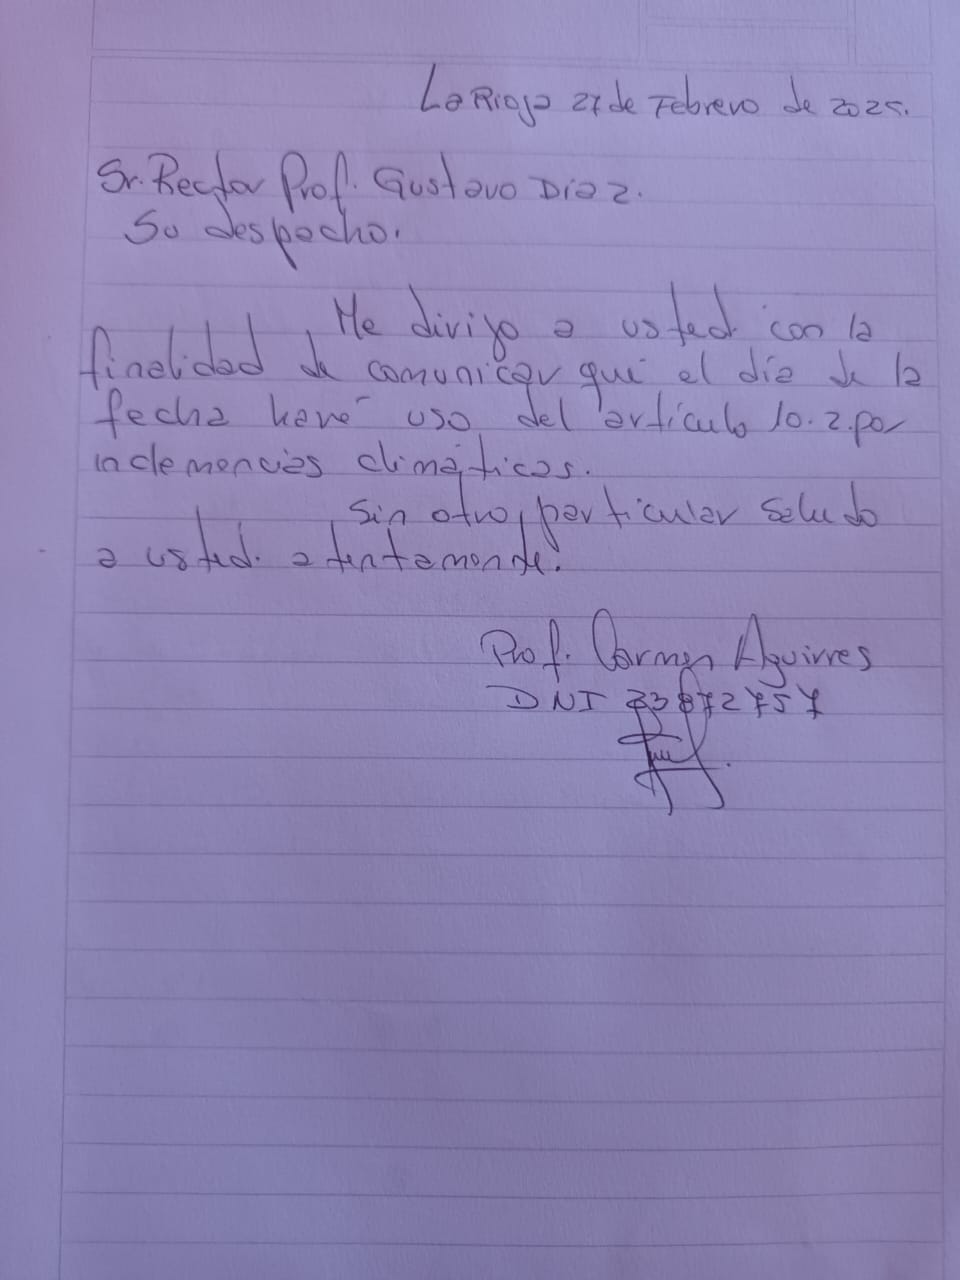 La Rioja 27 de Febrero de 2025.
Sr. Rector Prof. Gustavo Diaz.
Su despacho.
Me dirijo a usted con la
finalidad de comunicar que el día de la
fecha haré uso del artículo 10.2.por
inclemencias climáticas.
Sin otro particular saludo
a usted. atentamente.
Prof. Carmen Aguirres
DNI